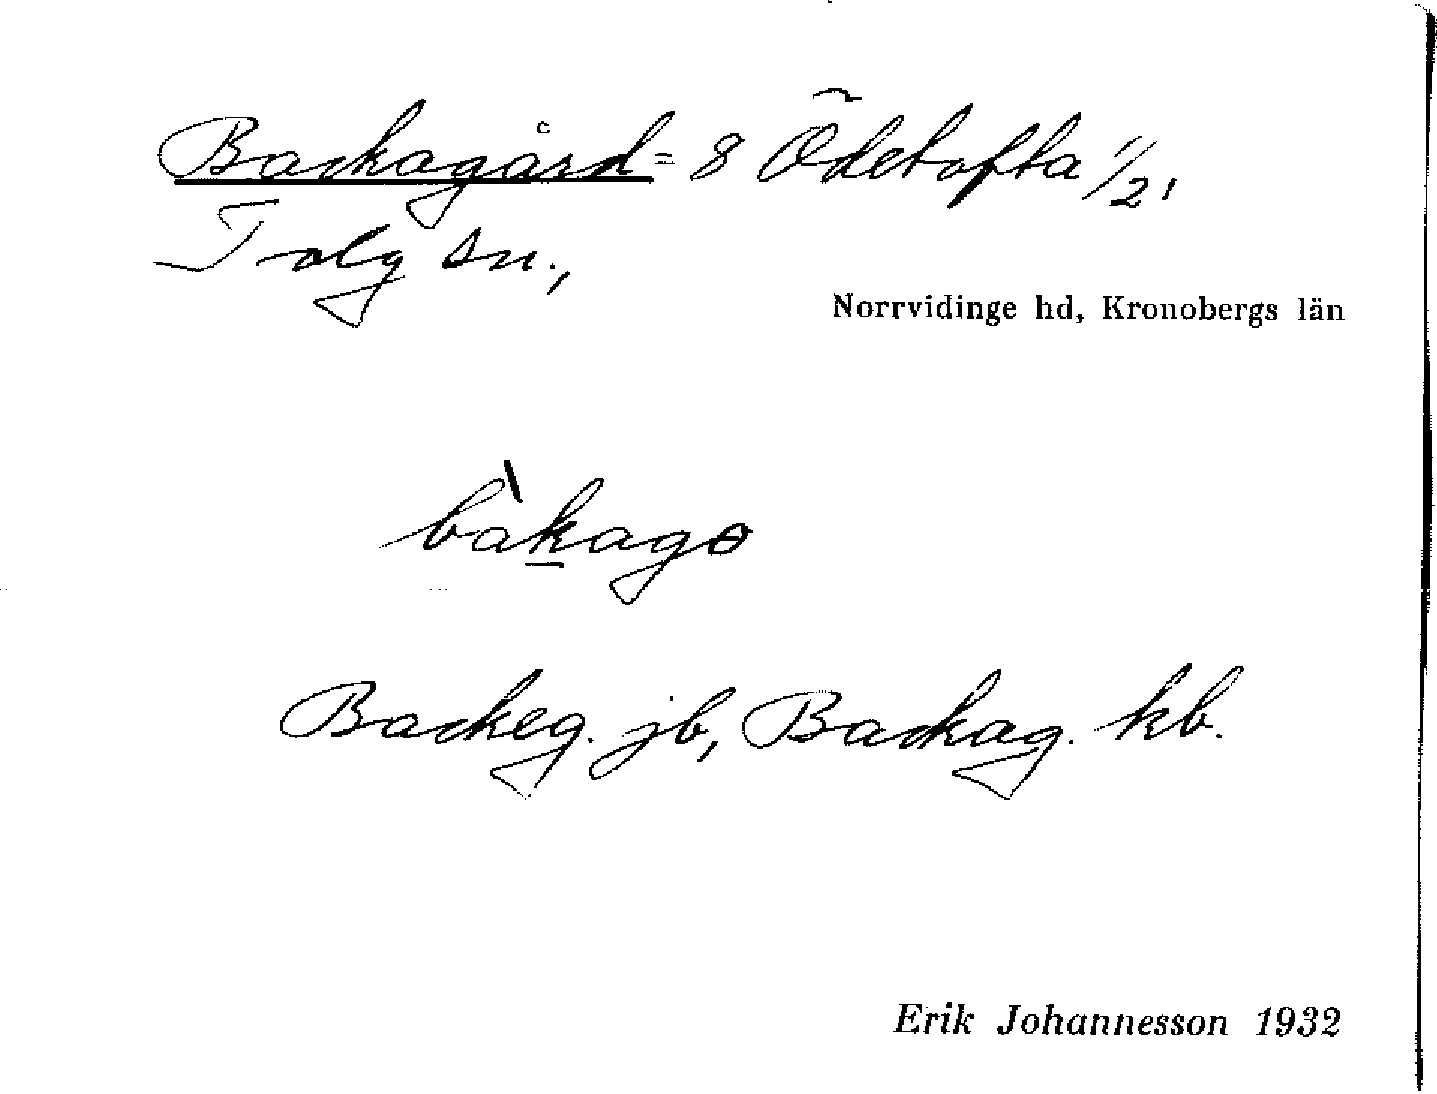 Backagård = 8 Ödetofta 1/2,
Tolg sn.,
Norrvidinge hd, Kronobergs län
bàkago
Backeg. jb, Backag. kb.
Erik Johannesson 1932